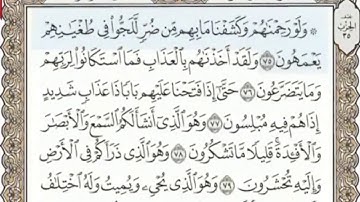 ۞ وَلَوْ رَحِمْنَٰهُمْ وَكَشَفْنَا مَا بِهِم مِّن ضُرٍّ لَّلَجُّوا۟ فِى طُغْيَٰنِهِمْ
يَعْمَهُونَ ٧٥ وَلَقَدْ أَخَذْنَٰهُم بِٱلْعَذَابِ فَمَا ٱسْتَكَانُوا۟ لِرَبِّهِمْ
وَمَا يَتَضَرَّعُونَ ٧٦ حَتَّىٰٓ إِذَا فَتَحْنَا عَلَيْهِم بَابًا ذَا عَذَابٍ شَدِيدٍ
إِذَا هُمْ فِيهِ مُبْلِسُونَ ٧٧ وَهُوَ ٱلَّذِىٓ أَنشَأَ لَكُمُ ٱلسَّمْعَ وَٱلْأَبْصَٰرَ
وَٱلْأَفْـِٔدَةَ قَلِيلًا مَّا تَشْكُرُونَ ٧٨ وَهُوَ ٱلَّذِى ذَرَأَكُمْ فِى ٱلْأَرْضِ
وَإِلَيْهِ تُحْشَرُونَ ٧٩ وَهُوَ ٱلَّذِى يُحْىِۦ وَيُمِيتُ وَلَهُ ٱخْتِلَٰفُ